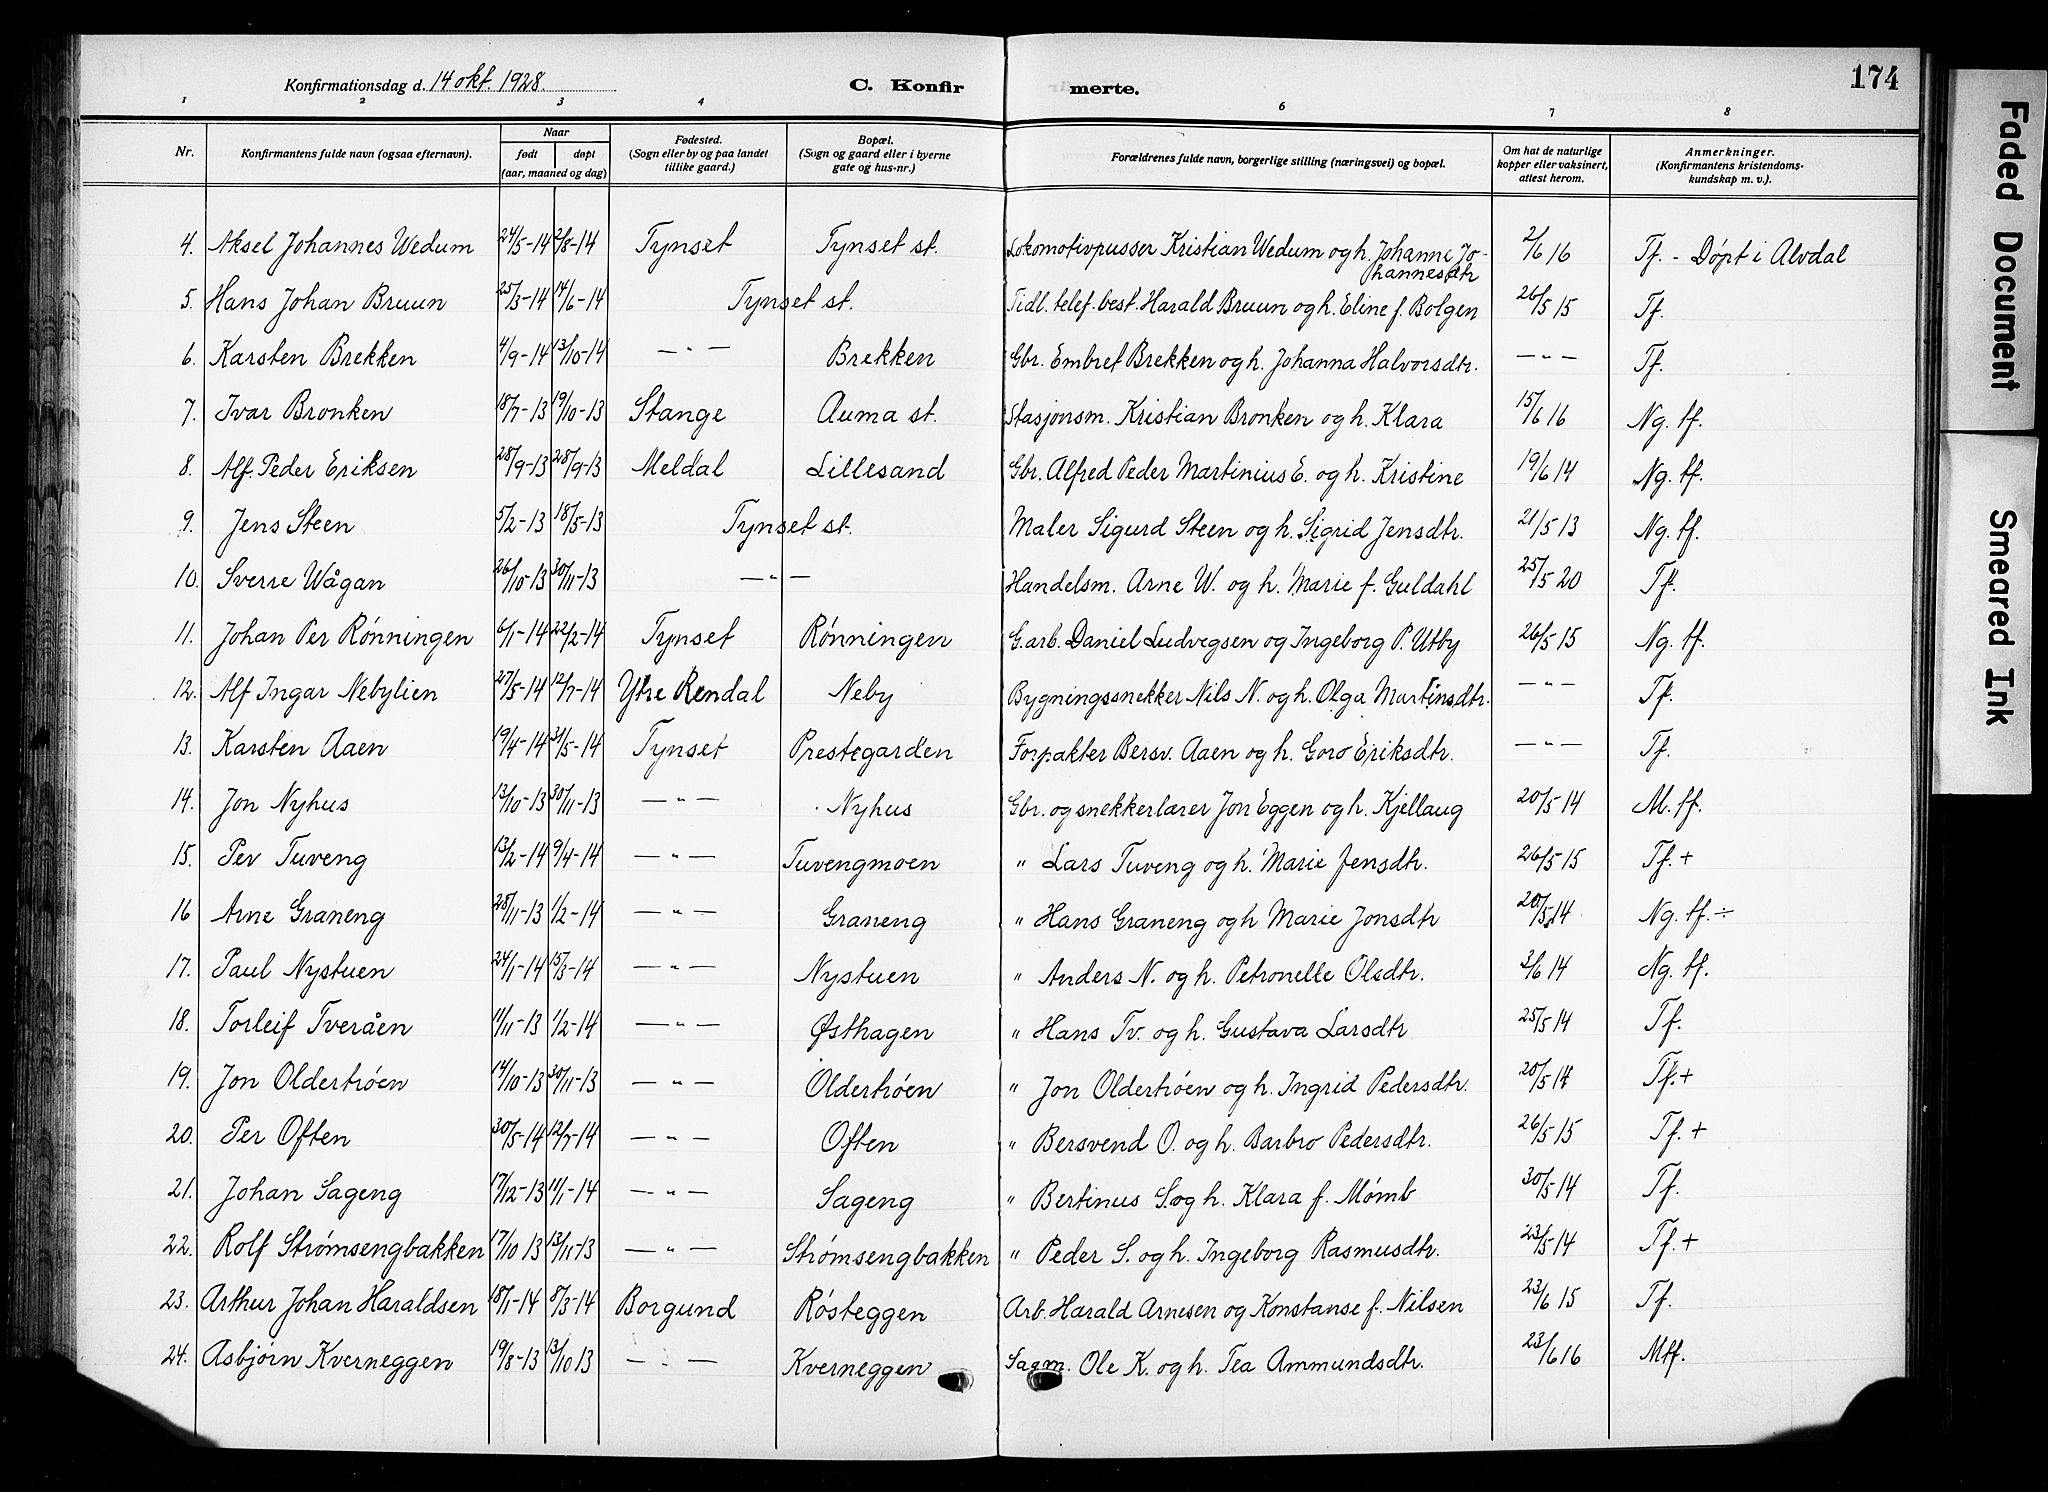 Konfirmationsdag d. 14 okt. 1928.
C. Konfirmerte.
174
1 2 3 4 5 6 7 8
Nr.
Konfirmantens fulde navn (ogsaa efternavn).
Naar
født døpt
(aar, maaned og dag)
Fødested.
(Sogn eller by og paa landet
tillike gaard.)
Bopæl.
(Sogn og gaard eller i byerne
gate og hus-nr.)
Forældrenes fulde navn, borgerlige stilling (næringsvei) og bopæl.
Om hat de naturlige
kopper eller vaksinert,
attest herom.
Anmerkninger.
(Konfirmantens kristendoms-
kundskap m. v.).
4. Aksel Johannes Wedum 24/5-14 2/8-14 Tynset Tynset st. Lokomotivpusser Kristian Wedum og h. Johanne Jo- 2/6 16 Tf. - Døpt i Alvdal
hannesdtr
5. Hans Johan Bruun 25/3-14 14/6-14 Tynset st. Tidl. telef. best. Harald Bruun og h. Eline f. Bolgen 26/5 15 Tf.
6. Karsten Brekken 4/9-14 13/10-14 —"— Brekken Gbr. Embret Brekken og h. Johanna Halvorsdtr. —"— Tf.
7. Ivar Bronken 18/7-13 19/10-13 Stange Auma st. Stasjonsm. Kristian Bronken og h. Klara 15/6 16 Ng. tf.
8. Alf Peder Eriksen 28/9-13 28/9-13 Meldal Lillesand Gbr. Alfred Peder Martinius E. og h. Kristine 19/6 14 Ng. tf.
9. Jens Steen 5/2-13 18/5-13 Tynset st. Maler Sigurd Steen og h. Sigrid Jensdtr. 21/5 13 Ng. tf.
10. Sverre Wågan 26/10-13 30/11-13 —"— Handelsm. Arne W. og h. Marie f. Guldahl 25/5 20 Tf.
11. Johan Per Rønningen 6/1-14 22/2-14 Tynset Rønningen G. arb. Daniel Ludvegsen og Ingeborg P. Utby 26/5 15 Ng. tf.
12. Alf Ingar Nebylien 27/5-14 12/7-14 Ytre Rendal Neby Bygningssnekker Nils N. og h. Olga Martinsdtr. —"— Tf.
13. Karsten Aaen 19/4-14 31/5-14 Tynset Prestegarden Forpakter Bersv. Aaen og h. Goro Eriksdtr. —"— Tf.
14. Jon Nyhus 13/10-13 30/11-13 —"— Nyhus Gbr. og snekkerlærer Jon Eggen og h. Kjellaug 20/5-14 M. tf.
15. Per Tuveng 13/2-14 9/4-14 —"— Tuvengmoen " Lars Tuveng og h. Marie Jensdtr. 26/5 15 Tf. +
16 Arne Graneng 28/11-13 1/2-14 —"— Graneng " Hans Graneng og h Marie Jonsdtr 20/5 14 Ng. tf. ÷
17. Paul Nystuen 24/1-14 15/3-14 —"— Nystuen " Anders N. og h. Petronelle Olsdtr. 3/6 14 Ng. tf.
18. Torleif Tveråen 11/11-13 1/2-14 —"— Østhagen " Hans Tv. og h. Gustava Larsdtr 25/5 14 Tf.
19. Jon Oldertrøen 14/10-13 30/11-13 —"— Oldertrøen " Jon Oldertrøen og h. Ingrid Pedersdtr. 20/5 14 Tf. +
20. Per Often 30/5-14 12/7-14 —"— Often " Bersvend O. og h. Barbro Pedersdtr. 26/5 15 Tf. +
21. Johan Sageng 17/12-13 11/1-14 —"— Sageng " Bertinus S. og h. Klara f. Mømb 30/5-14 Tf.
22. Rolf Strømsengbakken 17/10 13 13/11-13 —"— Strømsengbakken " Peder S. og h. Ingeborg Rasmusdtr. 23/5-14 Tf. +
23. Arthur Johan Haraldsen 18/1-14 8/3-14 Borgund Røsteggen Arb. Harald Arnesen og Konstanse f. Nilsen 23/6 15 Tf.
24. Asbjørn Kverneggen 19/8-13 13/10 13 —"— Kverneggen Sagm. Ole K. og h. Tea Ammundsdtr. 23/6 16 Mtf.
Faded Document
Smeared Ink